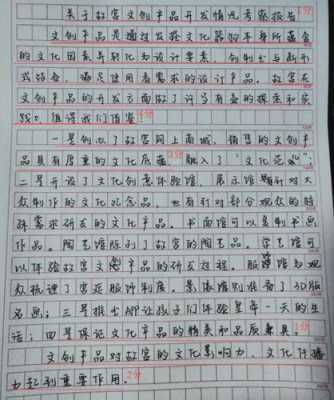 关于故宫文创产品开发情况考察报告 1分
文创产品是通过发掘文化器物本身所蕴含
的文化因素并转化为设计要素，创
形式结合，满足使用者需求的设计产品。故宫在
文创产品的开发方面做了许多有益的探索和实
践，值得我们借鉴。
一是创办了故宫网上商城，销售的文创产
品具有厚重的文化底蕴，融入了“文化
二是开设了文化创意体验馆，展示馆针对大
众制作的文化纪念品，也有针对部分观众的特
殊需求研发的文化产品。书画馆可以复制书画
作品。陶艺馆陈列了故宫的陶艺品。馆可
以体验故宫文创产品的研发过程。服饰馆为观
众梳理了宫廷服饰制度。影像馆别准备了3D版
名画；三是推出APP让孩子们体验皇帝一天的生
活；四是保证文化产品的精美和品质兼具。
文创产品对故宫的文化影响力、文化传播
力起到重要作用。 2分